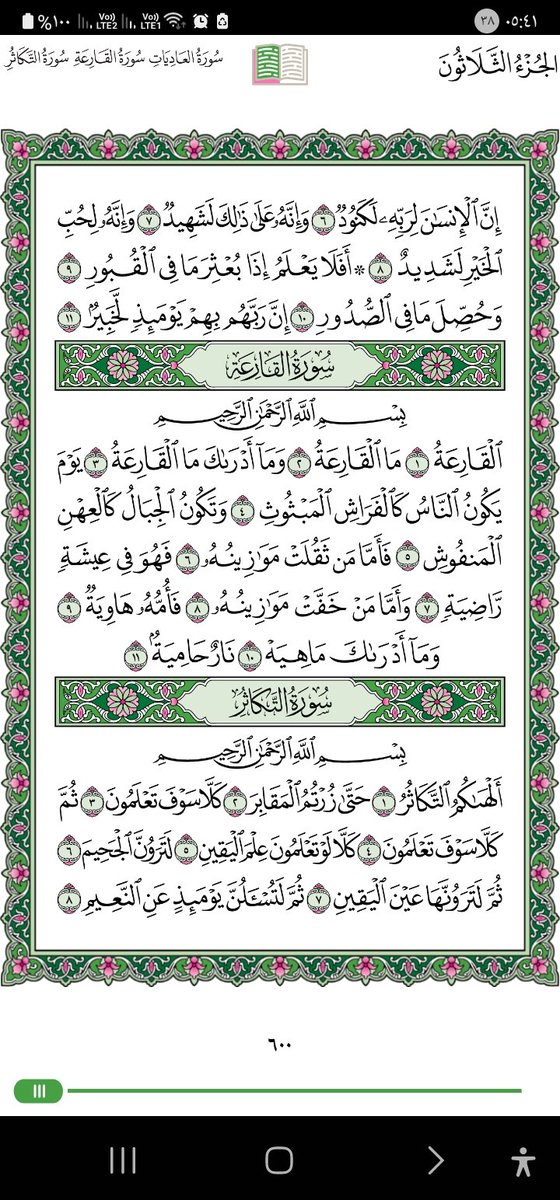 ٠٥:٤١ ٣٨ Vo)) LTE1 Vo)) LTE2 %١٠٠
الجُزْءُ الثَّلَاثُونَ سُورَةُ العَادِيَاتِ سُورَةُ القَارِعَةِ سُورَةُ التَّكَاثُرِ
إِنَّ ٱلْإِنسَٰنَ لِرَبِّهِۦ لَكَنُودٌ ٦ وَإِنَّهُۥ عَلَىٰ ذَٰلِكَ لَشَهِيدٌ ٧ وَإِنَّهُۥ لِحُبِّ
ٱلْخَيْرِ لَشَدِيدٌ ٨ ۞ أَفَلَا يَعْلَمُ إِذَا بُعْثِرَ مَا فِي ٱلْقُبُورِ ٩
وَحُصِّلَ مَا فِي ٱلصُّدُورِ ١٠ إِنَّ رَبَّهُم بِهِمْ يَوْمَئِذٍ لَّخَبِيرٌۢ ١١
سُورَةُ القَارِعَةِ
بِسْمِ ٱللَّهِ ٱلرَّحْمَٰنِ ٱلرَّحِيمِ
ٱلْقَارِعَةُ ١ مَا ٱلْقَارِعَةُ ٢ وَمَآ أَدْرَىٰكَ مَا ٱلْقَارِعَةُ ٣ يَوْمَ
يَكُونُ ٱلنَّاسُ كَٱلْفَرَاشِ ٱلْمَبْثُوثِ ٤ وَتَكُونُ ٱلْجِبَالُ كَٱلْعِهْنِ
ٱلْمَنفُوشِ ٥ فَأَمَّا مَن ثَقُلَتْ مَوَٰزِينُهُۥ ٦ فَهُوَ فِي عِيشَةٍ
رَّاضِيَةٍ ٧ وَأَمَّا مَنْ خَفَّتْ مَوَٰزِينُهُۥ ٨ فَأُمُّهُۥ هَاوِيَةٌ ٩
وَمَآ أَدْرَىٰكَ مَا هِيَهْ ١٠ نَارٌ حَامِيَةٌۢ ١١
سُورَةُ التَّكَاثُرِ
بِسْمِ ٱللَّهِ ٱلرَّحْمَٰنِ ٱلرَّحِيمِ
أَلْهَىٰكُمُ ٱلتَّكَاثُرُ ١ حَتَّىٰ زُرْتُمُ ٱلْمَقَابِرَ ٢ كَلَّا سَوْفَ تَعْلَمُونَ ٣ ثُمَّ
كَلَّا سَوْفَ تَعْلَمُونَ ٤ كَلَّا لَوْ تَعْلَمُونَ عِلْمَ ٱلْيَقِينِ ٥ لَتَرَوُنَّ ٱلْجَحِيمَ ٦
ثُمَّ لَتَرَوُنَّهَا عَيْنَ ٱلْيَقِينِ ٧ ثُمَّ لَتُسْـَٔلُنَّ يَوْمَئِذٍ عَنِ ٱلنَّعِيمِ ٨
٦٠٠